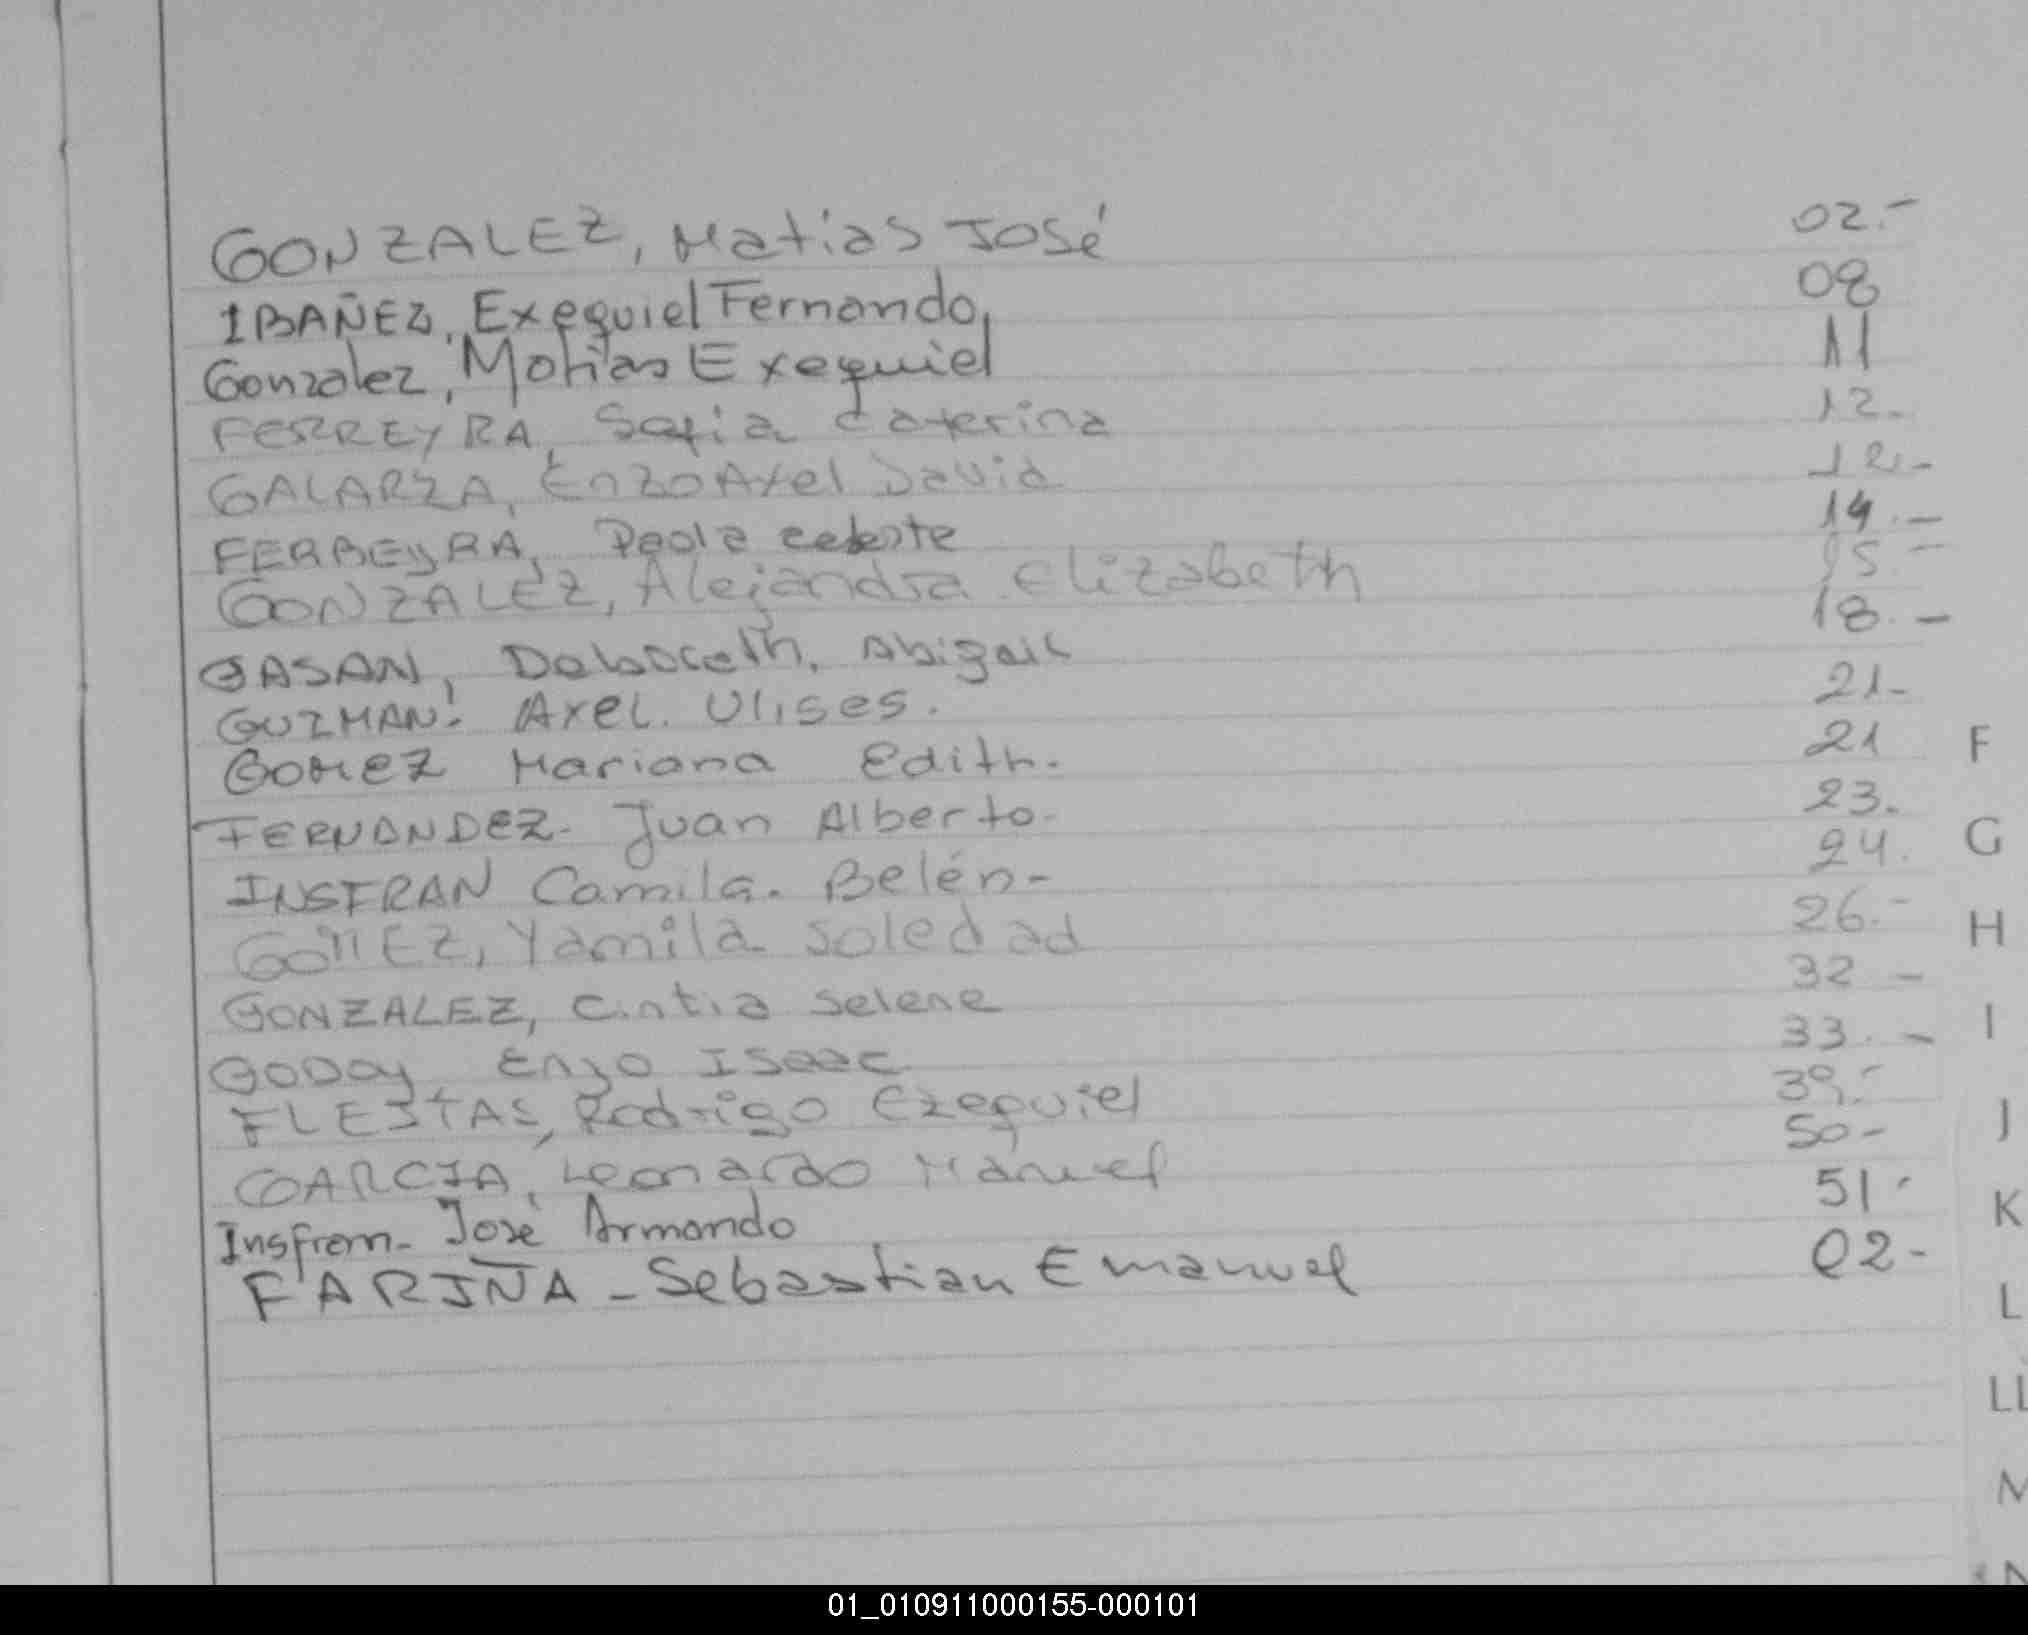 GONZALEZ, Matias José 02.-
IBAÑEZ, Exequiel Fernando, 08
Gonzalez, Matias Exequiel 11
FERREYRA, Sofia Caterina 12.
GALARZA, Enzo Axel David 12.-
FERREYRA, Paola celeste 14.-
GONZALEZ, Alejandra Elizabeth 15.-
GASAN, Abigail 18.-
GUZMAN. Axel. Ulises. 21-
GOMEZ Mariana Edith. 21
FERNANDEZ- Juan Alberto- 23.
INSFRAN Camila. Belén- 24.
GOMEZ, Yamila Soledad 26.-
GONZALEZ, Cintia Selene 32 -
GODOY Enzo Isaac 33.-
FLEITAS, Rodrigo Ezequiel 39.-
GARCIA, Leonardo Manuel 50-
Insfran- José Armando 51.
FARIÑA - Sebastian Emanuel 02-
F
G
H
I
J
K
L
LL
M
N
01_010911000155-000101